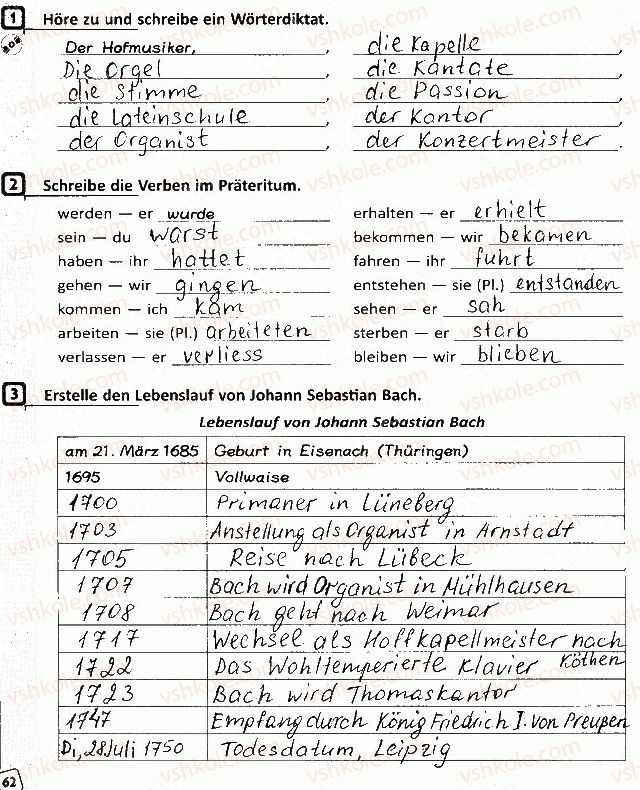 1 Höre zu und schreibe ein Wörterdiktat.
Der Hofmusiker, die Kapelle,
Die Orgel, die Kantate,
die Stimme, die Passion,
die Lateinschule, der Kantor,
der Organist, der Konzertmeister.
2 Schreibe die Verben im Präteritum.
werden — er wurde erhalten — er erhielt
sein — du warst bekommen — wir bekamen
haben — ihr hattet fahren — ihr fuhrt
gehen — wir gingen entstehen — sie (Pl.) entstanden
kommen — ich kam sehen — er sah
arbeiten — sie (Pl.) arbeiteten sterben — er starb
verlassen — er verliess bleiben — wir blieben
3 Erstelle den Lebenslauf von Johann Sebastian Bach.
Lebenslauf von Johann Sebastian Bach
am 21. März 1685 Geburt in Eisenach (Thüringen)
1695 Vollwaise
1700 Primaner in Lüneberg
1703 Anstellung als Organist in Arnstadt
1705 Reise nach Lübeck
1707 Bach wird Organist in Mühlhausen
1708 Bach geht nach Weimar
1717 Wechsel als Hoffkapellmeister nach
1722 Das Wohltemperierte Klavier Köthen
1723 Bach wird Thomaskantor
1747 Empfang durch König Friedrich I. von Preußen
Di, 28 Juli 1750 Todesdatum, Leipzig
62
vshkole.com